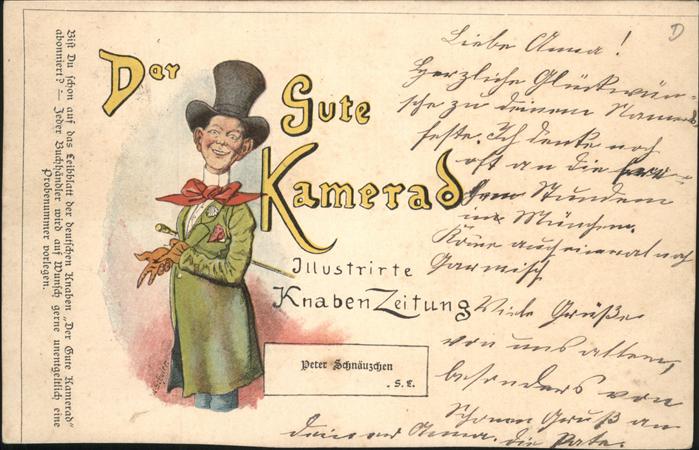 Bist Du schon auf das Leibblatt der deutschen Knaben „Der Gute Kamerad"
abonniert? — Jeder Buchhändler wird auf Wunsch gerne unentgeltlich eine
Probenummer vorlegen.
Der
Gute
Kamerad
Illustrirte
KnabenZeitung
Peter Schnäuzchen
. S. E.
D
Liebe Anna!
Herzliche Glückwün-
sche zu deinem Namens
feste. Ich denke noch
oft an die
Stunden
in München.
Komme auch einmal nach
Garmisch
Viele Grüße
von uns allen,
besonders von
deiner Anna.
Schönen Gruß an
die Pate.